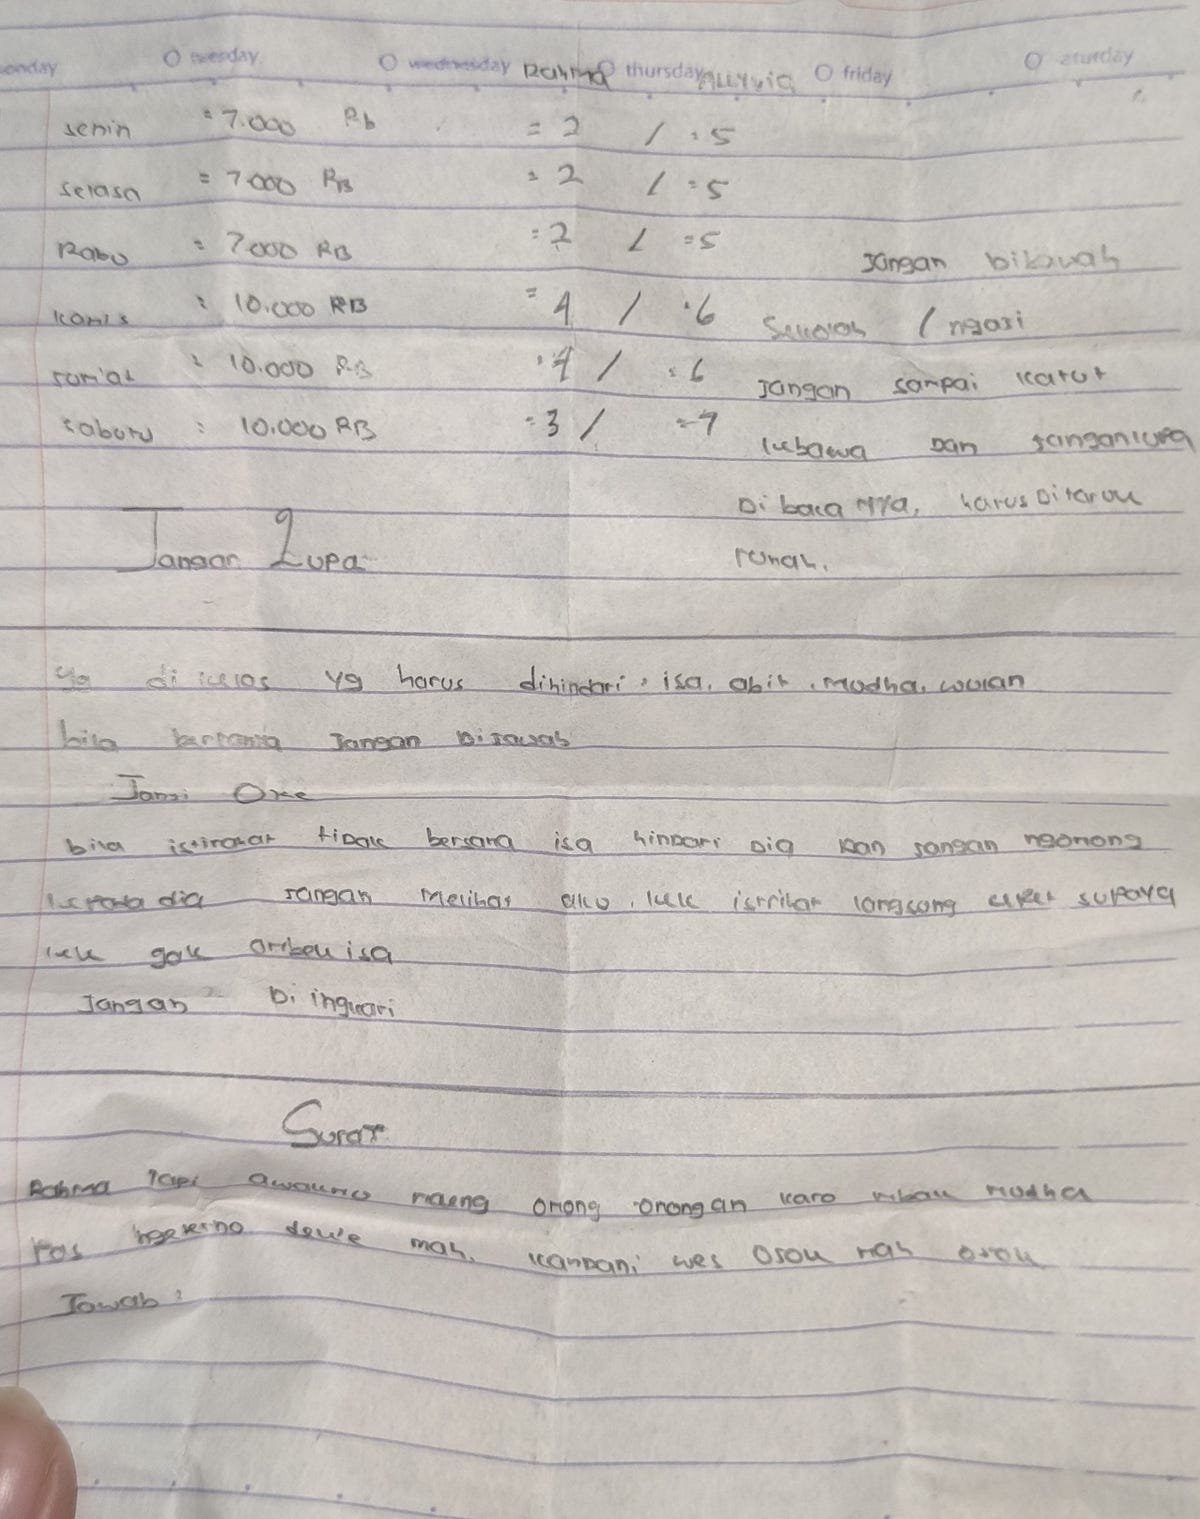 onday O tuesday O wednesday Rahma O thursday Allyvia O friday O saturday
senin = 7.000 Rb = 2 / = 5
selasa = 7000 RB = 2 / = 5
Rabu = 7000 RB = 2 / = 5
Jangan dibawah
kamis : 10.000 RB = 4 / = 6
sekolah / ngasi
jum'at : 10.000 RB = 4 / = 6
Jangan sampai katut
sabutu : 10.000 RB = 3 / = 7
kebawa Dan janganlupa
Di baca nya, harus Ditaruk
Jangan Lupa
rumah.
yg di kelas yg harus dihindari : isa, abit, mudha, wulan
bila bertanya Jangan Dijawab
Janji Oke
bila istirahat tidak bersama isa hindari Dia Dan jangan ngomong
kepada dia jangan melihat aku, kek istrihat langsung cepet supaya
kek gak ambek isa
Jangan Di inguari
Surat
Rahma tapi awakmu maeng omong omongan karo mbak mudha
Pas dewe mah, kandani wes ojok mah ojok
Jawab :